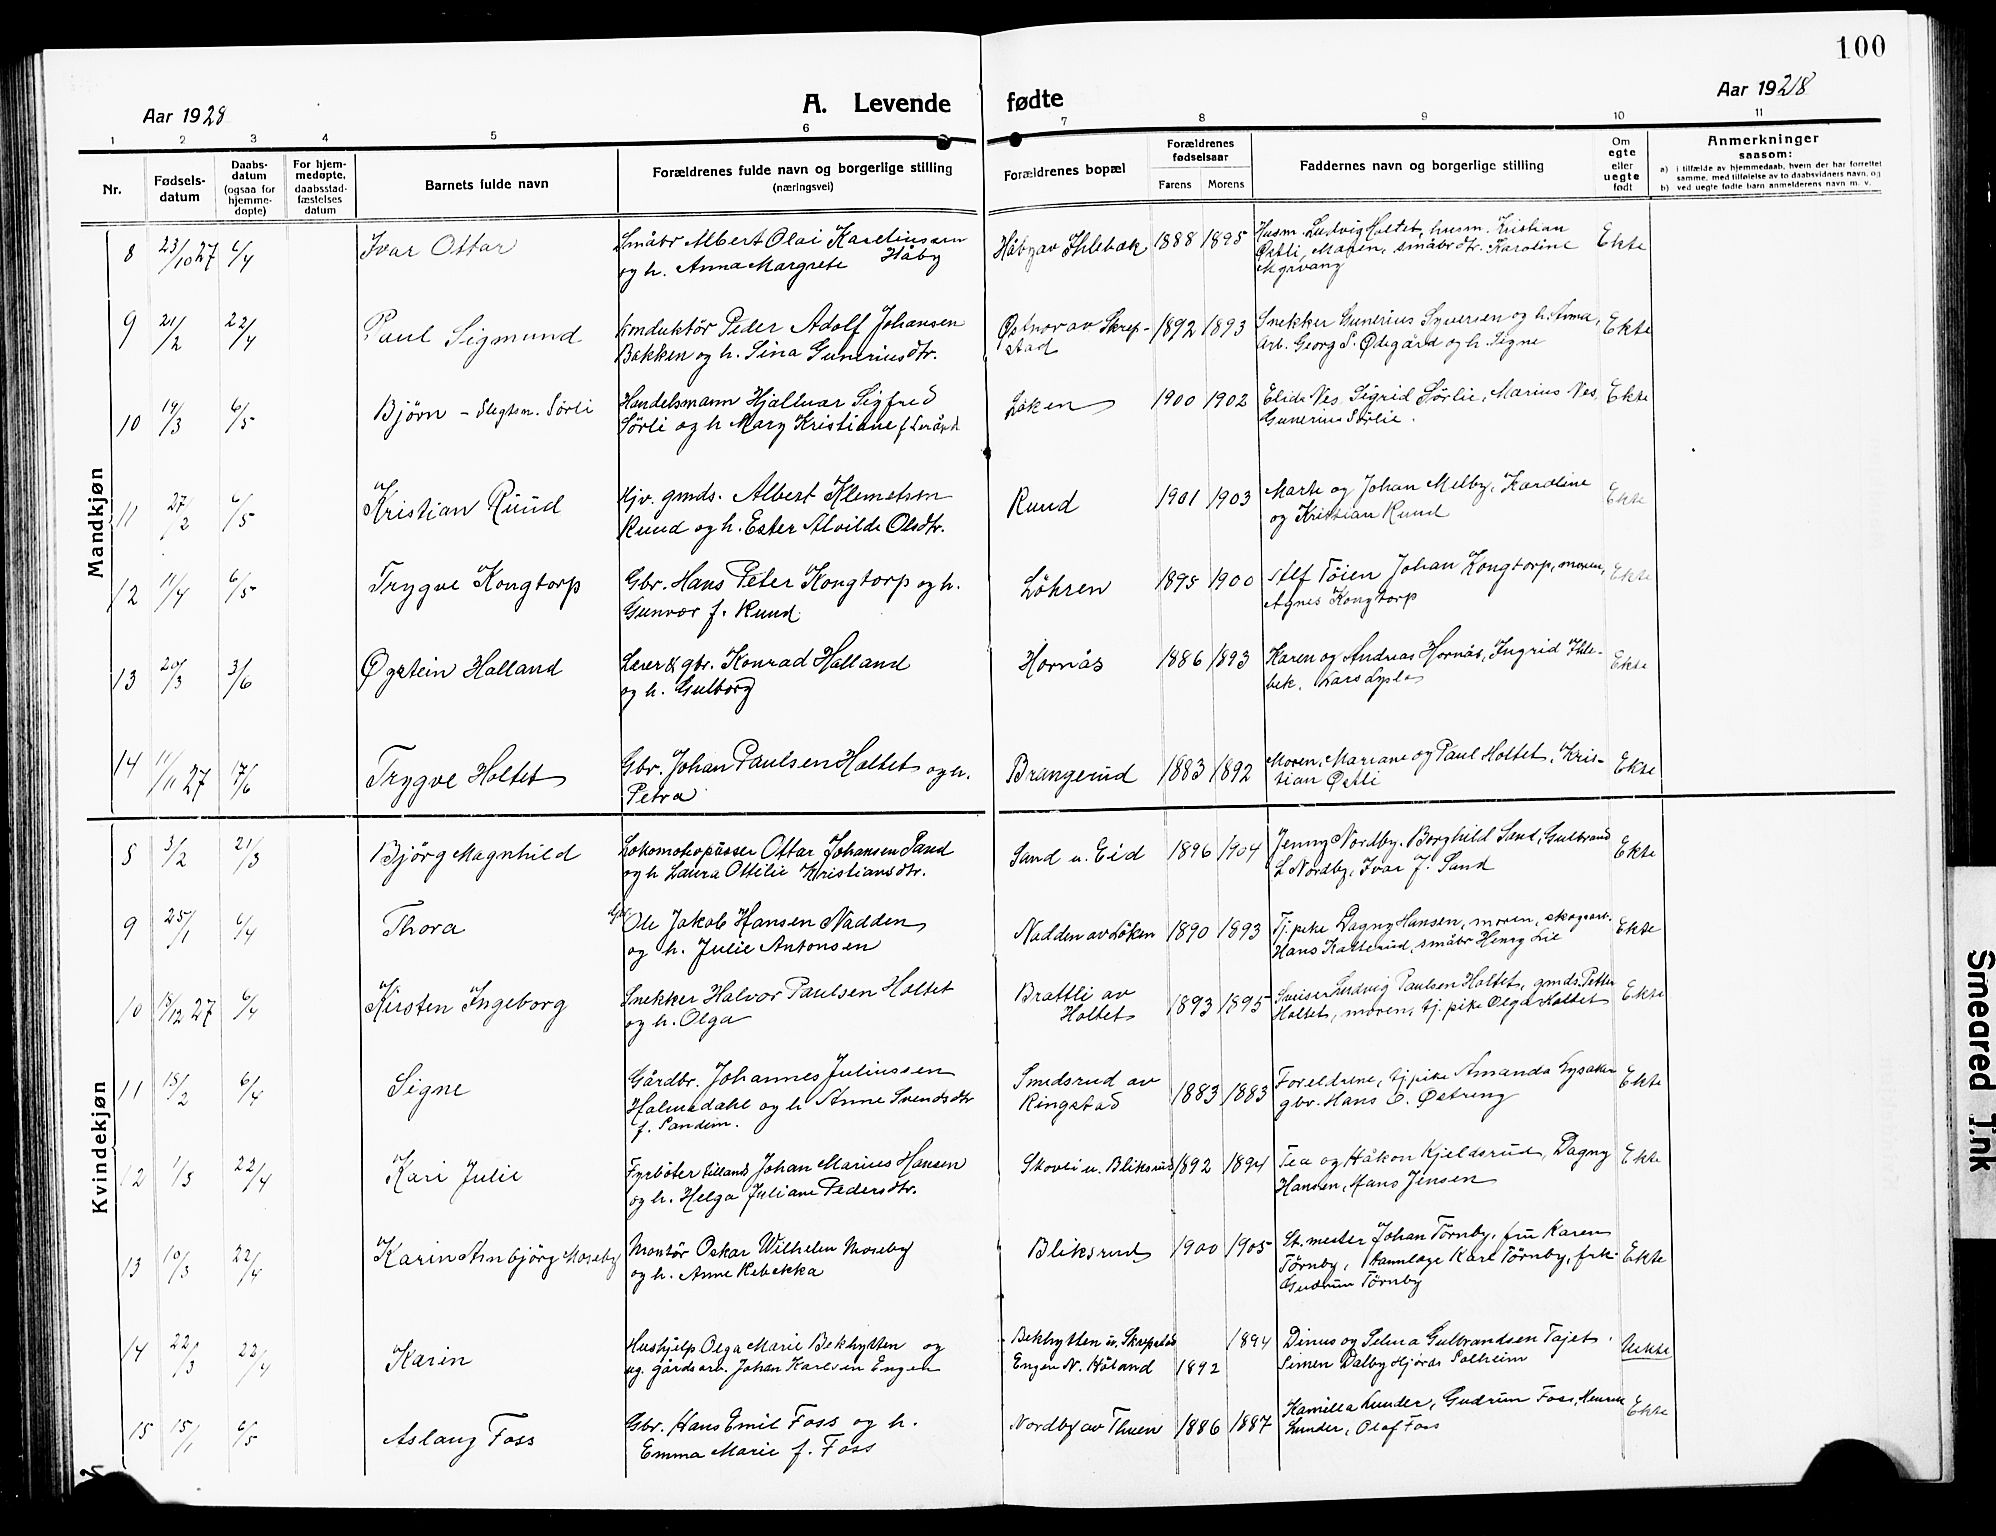 100
Aar 1928
A. Levende
fødte
Aar 1928
1 2 3 4 5 6 7 8 9 10 11
Nr.
Fødsels-
datum
Daabs-
datum
(ogsaa for
hjemme-
døpte)
For hjem-
medøpte,
daabsstad-
fæstelses
datum
Barnets fulde navn
Forældrenes fulde navn og borgerlige stilling
(næringsvei)
Forældrenes bopæl
Forældrenes
fødselsaar
Farens Morens
Faddernes navn og borgerlige stilling
Om
egte
eller
uegte
født
Anmerkninger
saasom:
a) i tilfælde av hjemmedaab, hvem der har forrettet
samme, med tilføielse av to daabsvidners navn, og
b) ved uegte fødte barn anmelderens navn m. v.
Mandkjøn
8 23/10 27 6/4 Ivar Ottar Småbr Albert Olai Kareliussen Håby av Ihlebæk 1888 1895 Husm. Ludvig Holtet, husm. Kristian Ekte
og h. Anna Margrete Håby Østli, Maren, småbrdtr. Karoline
9 21/2 22/4 Paul Sigmund Konduktör Peder Adolf Johansen Østnor av Skrep- 1892 1893 Snekker Gunerius Syversen og h. Anna, Ekte
Bakken og h. Sina Guneriusdtr. stad Arb. Georg S. Ødegård og h. Signe
10 19/3 6/5 Björn - Slegtsn. Sörli Handelsmann Hjallmar Sigfred Løken 1900 1902 Elida Nes, Sigrid Sörlie, Marius Nes, Ekte
Sörli og h Mary Kristiane f Gunerius Sørlie.
11 27/2 6/5 Kristian Ruud Hjv. gmds. Albert Klemetsen Ruud 1901 1903 Marte og Johan Melby, Karoline Ekte
Ruud og h. Ester Alvilde Olsdtr. og Kristian Ruud
12 11/4 6/5 Trygve Kongtorp Gbr. Hans Peter Kongtorp og h. Löhren 1895 1900 Alf Töien Johan Kongtorp, moren, Ekte
Gunvor f. Ruud Agnes Kongtorp
13 20/3 3/6 Øystein Halland Lærer & gbr. Konrad Halland Hornås 1886 1893 Karen og Andreas Hornås, Ingrid Ihle- Ekte
og h. Gulborg bek,
14 11/11 27 17/6 Trygve Holtet Gbr. Johan Paulsen Holtet og h. Brangerud 1883 1892 Moren, Mariane og Paul Holtet, Kris- Ekte
Petra tian Østli
Kvindekjøn
8 3/2 21/3 Björg Magnhild Lokomotivpusser Ottar Johansen Sand Sand u. Eid 1896 1904 Jenny Nordby, Borghild Sand, Gulbrand Ekte
og h Laura Ottilie Kristiansdtr. L Nordby, Ivar J. Sand
9 25/1 6/4 Thora Gbr Ole Jakob Hansen Nadden Nadden av Löken 1890 1893 Tj. pike Dagny Hansen, moren, skogsarb. Ekte
og h. Julie Antonsen Hans Katterud, småbr Henry Lie
10 18/12 27 6/4 Kirsten Ingeborg Snekker Halvor Paulsen Holtet Brattli av 1893 1895 Ludvig Paulsen Holtet, gmds. Petter Ekte
og h. Olga Holtet Holtet, moren, tj. pike Olga Holtet
11 15/2 6/4 Signe Gårdbr. Johannes Juliussen Smedsrud av 1883 1883 Foreldrene, tj pike Amanda Lysaker Ekte
Holmedahl og h Anne Svendsdtr Ringstad gbr. Hans O. Østreng
f. Sandem.
12 1/3 22/4 Kari Julie Fyrböter Johan Marius Hansen Skovli u. Bliksrud 1892 1894 Tea og Håkon Kjeldsrud, Dagny Ekte
og h. Helga Juliane Pedersdtr. Hansen, Hans Jensen
13 10/3 22/4 Karin Arnbjörg Moseby Montör Oskar Wilhelm Moseby Bliksrud 1900 1905 St. mester Johan Törnby, fru Karen Ekte
og h. Anne Rebekka Törnby, tannlæge Karl Törnby, frk.
Gudrun Törnby
14 22/3 22/4 Karin Hushjelp Olga Marie Bekhytten og Bekhytten u. Skrepstad 1894 Dinus og Selma Gulbrandsen Tajet, Uekte
ug. gårdsarb. Johan Karlsen Engen Engen N. Höland 1892 Simen Dalby Hjördis Solheim
15 15/1 6/5 Aslaug Foss Gbr. Hans Emil Foss og h. Nordby av Thuen 1886 1887 Kamilla Lunder, Gudrun Foss, Ekte
Emma Marie f. Foss Lunder, Olaf Foss
Smeared Ink